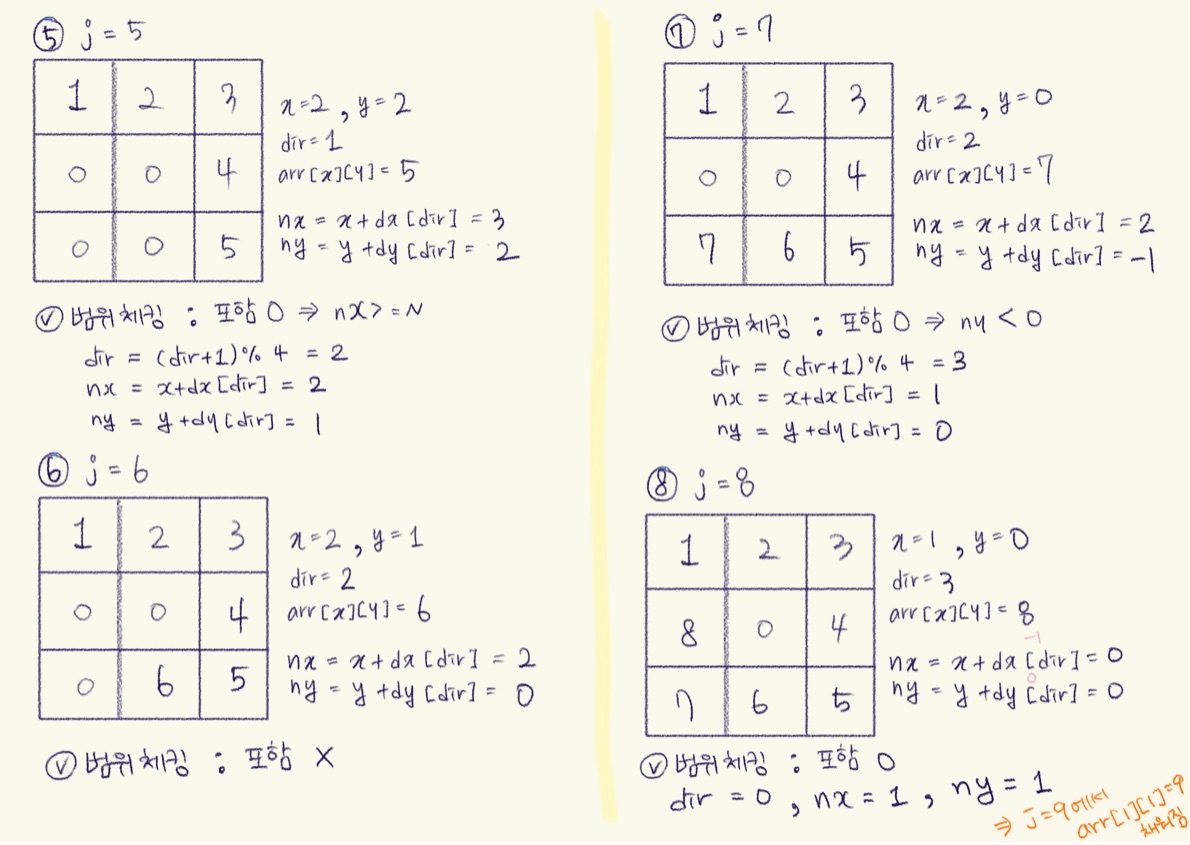 ⑤ j = 5
1 2 3
0 0 4
0 0 5
x=2, y=2
dir=1
arr[x][y]=5
nx = x+dx[dir] = 3
ny = y+dy[dir] = 2
ⓥ 범위체킹 : 포함 O ⇒ nx>=N
dir = (dir+1)% 4 = 2
nx = x+dx[dir] = 2
ny = y+dy[dir] = 1
⑥ j = 6
1 2 3
0 0 4
0 6 5
x=2, y=1
dir=2
arr[x][y]=6
nx = x+dx[dir] = 2
ny = y+dy[dir] = 0
ⓥ 범위체킹 : 포함 X
⑦ j = 7
1 2 3
0 0 4
7 6 5
x=2, y=0
dir=2
arr[x][y]=7
nx = x+dx[dir] = 2
ny = y+dy[dir] = -1
ⓥ 범위체킹 : 포함 O ⇒ ny < 0
dir = (dir+1)% 4 = 3
nx = x+dx[dir] = 1
ny = y+dy[dir] = 0
⑧ j = 8
1 2 3
8 0 4
7 6 5
x=1, y=0
dir=3
arr[x][y]=8
-1
nx = x+dx[dir] = 0
0
ny = y+dy[dir] = 0
ⓥ 범위체킹 : 포함 O
dir = 0, nx = 1, ny = 1
⇒ j=9에서
arr[1][1]=9
채워짐